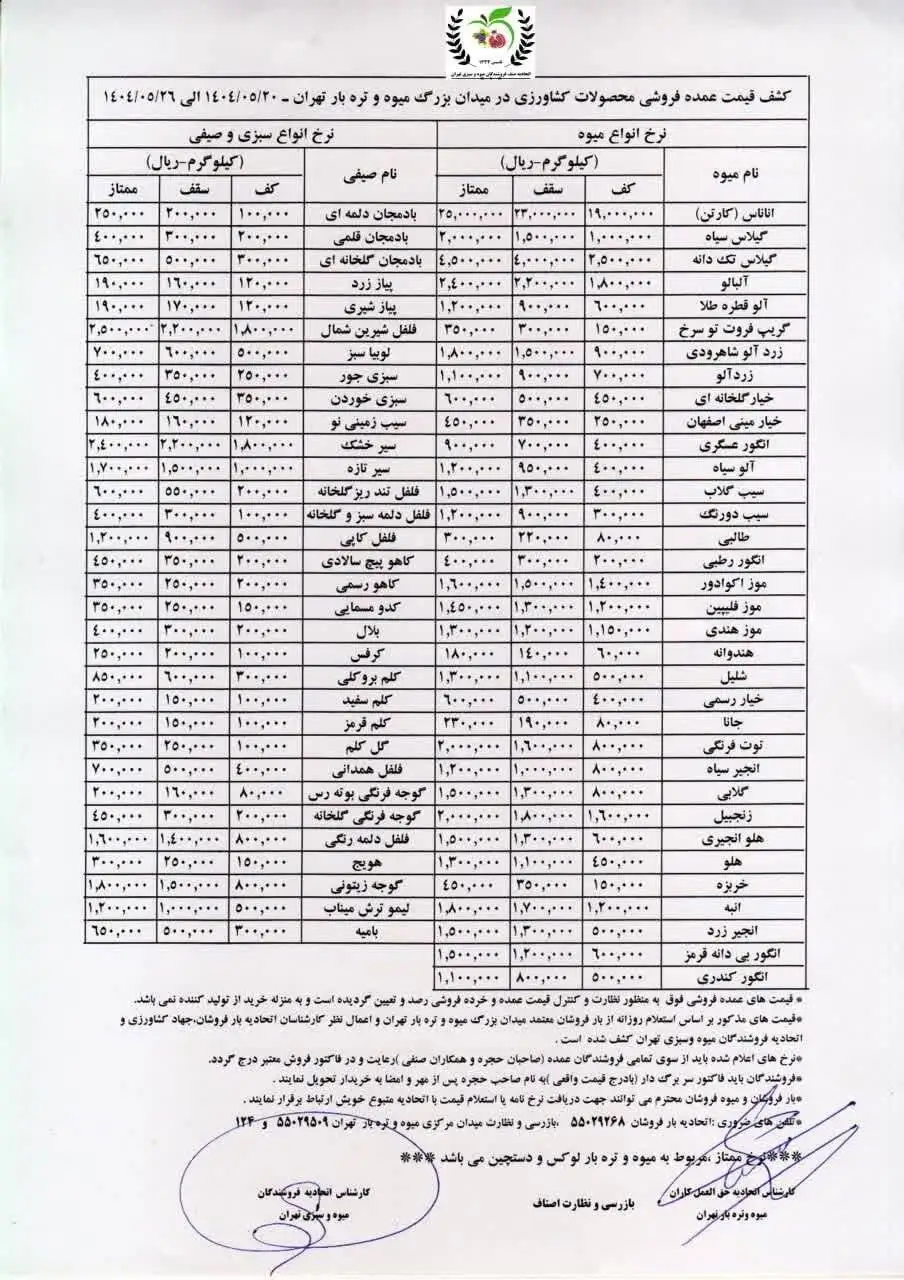 تاسیس ۱۳۲۲
اتحادیه صنف فروشندگان میوه و سبزی تهران
کشف قیمت عمده فروشی محصولات کشاورزی در میدان بزرگ میوه و تره بار تهران ـ ۱۴۰۴/۰۵/۲۰ الی ۱۴۰۴/۰۵/۲۶
نرخ انواع میوه نرخ انواع سبزی و صیفی
نام میوه (کیلوگرم-ریال) نام صیفی (کیلوگرم-ریال)
کف سقف ممتاز کف سقف ممتاز
اناناس (کارتن) ۱۹,۰۰۰,۰۰۰ ۲۳,۰۰۰,۰۰۰ ۲۵,۰۰۰,۰۰۰ بادمجان دلمه ای ۱۰۰,۰۰۰ ۲۰۰,۰۰۰ ۲۵۰,۰۰۰
گیلاس سیاه ۱,۰۰۰,۰۰۰ ۱,۵۰۰,۰۰۰ ۲,۰۰۰,۰۰۰ بادمجان قلمی ۲۰۰,۰۰۰ ۳۰۰,۰۰۰ ۴۰۰,۰۰۰
گیلاس تک دانه ۲,۵۰۰,۰۰۰ ۴,۰۰۰,۰۰۰ ۴,۵۰۰,۰۰۰ بادمجان گلخانه ای ۳۰۰,۰۰۰ ۵۰۰,۰۰۰ ۶۵۰,۰۰۰
آلبالو ۱,۸۰۰,۰۰۰ ۲,۲۰۰,۰۰۰ ۲,۴۰۰,۰۰۰ پیاز زرد ۱۲۰,۰۰۰ ۱۶۰,۰۰۰ ۱۹۰,۰۰۰
آلو قطره طلا ۶۰۰,۰۰۰ ۹۰۰,۰۰۰ ۱,۲۰۰,۰۰۰ پیاز شیری ۱۲۰,۰۰۰ ۱۷۰,۰۰۰ ۱۹۰,۰۰۰
گریپ فروت تو سرخ ۱۵۰,۰۰۰ ۳۰۰,۰۰۰ ۳۵۰,۰۰۰ فلفل شیرین شمال ۱,۸۰۰,۰۰۰ ۲,۲۰۰,۰۰۰ ۲,۵۰۰,۰۰۰
زرد آلو شاهرودی ۹۰۰,۰۰۰ ۱,۵۰۰,۰۰۰ ۱,۸۰۰,۰۰۰ لوبیا سبز ۵۰۰,۰۰۰ ۶۰۰,۰۰۰ ۷۰۰,۰۰۰
زردآلو ۷۰۰,۰۰۰ ۹۰۰,۰۰۰ ۱,۱۰۰,۰۰۰ سبزی جور ۲۵۰,۰۰۰ ۳۵۰,۰۰۰ ۴۰۰,۰۰۰
خیارگلخانه ای ۴۵۰,۰۰۰ ۵۰۰,۰۰۰ ۶۰۰,۰۰۰ سبزی خوردن ۳۵۰,۰۰۰ ۴۵۰,۰۰۰ ۶۰۰,۰۰۰
خیار مینی اصفهان ۲۵۰,۰۰۰ ۳۵۰,۰۰۰ ۴۵۰,۰۰۰ سیب زمینی نو ۱۲۰,۰۰۰ ۱۶۰,۰۰۰ ۱۸۰,۰۰۰
انگور عسگری ۴۰۰,۰۰۰ ۷۰۰,۰۰۰ ۹۰۰,۰۰۰ سیر خشک ۱,۸۰۰,۰۰۰ ۲,۲۰۰,۰۰۰ ۲,۴۰۰,۰۰۰
آلو سیاه ۴۰۰,۰۰۰ ۹۵۰,۰۰۰ ۱,۲۰۰,۰۰۰ سیر تازه ۱,۰۰۰,۰۰۰ ۱,۵۰۰,۰۰۰ ۱,۷۰۰,۰۰۰
سیب گلاب ۴۰۰,۰۰۰ ۱,۳۰۰,۰۰۰ ۱,۵۰۰,۰۰۰ فلفل تند ریزگلخانه ۲۰۰,۰۰۰ ۵۵۰,۰۰۰ ۶۰۰,۰۰۰
سیب دورنگ ۳۰۰,۰۰۰ ۹۰۰,۰۰۰ ۱,۲۰۰,۰۰۰ فلفل دلمه سبز و گلخانه ۱۰۰,۰۰۰ ۳۰۰,۰۰۰ ۴۰۰,۰۰۰
طالبی ۸۰,۰۰۰ ۲۲۰,۰۰۰ ۳۰۰,۰۰۰ فلفل کاپی ۵۰۰,۰۰۰ ۹۰۰,۰۰۰ ۱,۲۰۰,۰۰۰
انگور رطبی ۲۰۰,۰۰۰ ۳۰۰,۰۰۰ ۴۰۰,۰۰۰ کاهو پیچ سالادی ۲۰۰,۰۰۰ ۳۵۰,۰۰۰ ۴۵۰,۰۰۰
موز اکوادور ۱,۴۰۰,۰۰۰ ۱,۵۰۰,۰۰۰ ۱,۶۰۰,۰۰۰ کاهو رسمی ۲۰۰,۰۰۰ ۲۵۰,۰۰۰ ۳۵۰,۰۰۰
موز فلیپین ۱,۲۰۰,۰۰۰ ۱,۳۰۰,۰۰۰ ۱,۴۵۰,۰۰۰ کدو مسمایی ۱۵۰,۰۰۰ ۲۵۰,۰۰۰ ۳۵۰,۰۰۰
موز هندی ۱,۱۵۰,۰۰۰ ۱,۲۰۰,۰۰۰ ۱,۳۰۰,۰۰۰ بلال ۲۰۰,۰۰۰ ۳۰۰,۰۰۰ ۴۰۰,۰۰۰
هندوانه ۶۰,۰۰۰ ۱۴۰,۰۰۰ ۱۸۰,۰۰۰ کرفس ۱۰۰,۰۰۰ ۲۰۰,۰۰۰ ۲۵۰,۰۰۰
شلیل ۵۰۰,۰۰۰ ۱,۱۰۰,۰۰۰ ۱,۳۰۰,۰۰۰ کلم بروکلی ۳۰۰,۰۰۰ ۶۰۰,۰۰۰ ۸۵۰,۰۰۰
خیار رسمی ۴۰۰,۰۰۰ ۵۰۰,۰۰۰ ۶۰۰,۰۰۰ کلم سفید ۱۰۰,۰۰۰ ۱۵۰,۰۰۰ ۲۰۰,۰۰۰
جانا ۸۰,۰۰۰ ۱۹۰,۰۰۰ ۲۳۰,۰۰۰ کلم قرمز ۱۰۰,۰۰۰ ۱۵۰,۰۰۰ ۲۰۰,۰۰۰
توت فرنگی ۸۰۰,۰۰۰ ۱,۶۰۰,۰۰۰ ۲,۰۰۰,۰۰۰ گل کلم ۱۰۰,۰۰۰ ۲۵۰,۰۰۰ ۳۵۰,۰۰۰
انجیر سیاه ۸۰۰,۰۰۰ ۱,۰۰۰,۰۰۰ ۱,۲۰۰,۰۰۰ فلفل همدانی ۴۰۰,۰۰۰ ۵۰۰,۰۰۰ ۷۰۰,۰۰۰
گلابی ۸۰۰,۰۰۰ ۱,۳۰۰,۰۰۰ ۱,۵۰۰,۰۰۰ گوجه فرنگی بوته رس ۸۰,۰۰۰ ۱۶۰,۰۰۰ ۲۰۰,۰۰۰
زنجبیل ۱,۶۰۰,۰۰۰ ۱,۸۰۰,۰۰۰ ۲,۰۰۰,۰۰۰ گوجه فرنگی گلخانه ۲۰۰,۰۰۰ ۳۰۰,۰۰۰ ۴۵۰,۰۰۰
هلو انجیری ۶۰۰,۰۰۰ ۱,۳۰۰,۰۰۰ ۱,۵۰۰,۰۰۰ فلفل دلمه رنگی ۸۰۰,۰۰۰ ۱,۴۰۰,۰۰۰ ۱,۶۰۰,۰۰۰
هلو ۴۵۰,۰۰۰ ۱,۱۰۰,۰۰۰ ۱,۳۰۰,۰۰۰ هویج ۱۵۰,۰۰۰ ۲۵۰,۰۰۰ ۳۰۰,۰۰۰
خربزه ۱۵۰,۰۰۰ ۳۵۰,۰۰۰ ۴۵۰,۰۰۰ گوجه زیتونی ۸۰۰,۰۰۰ ۱,۵۰۰,۰۰۰ ۱,۸۰۰,۰۰۰
انبه ۱,۲۰۰,۰۰۰ ۱,۷۰۰,۰۰۰ ۱,۸۰۰,۰۰۰ لیمو ترش میناب ۵۰۰,۰۰۰ ۱,۰۰۰,۰۰۰ ۱,۲۰۰,۰۰۰
انجیر زرد ۵۰۰,۰۰۰ ۱,۳۰۰,۰۰۰ ۱,۵۰۰,۰۰۰ بامیه ۳۰۰,۰۰۰ ۵۰۰,۰۰۰ ۶۵۰,۰۰۰
انگور بی دانه قرمز ۶۰۰,۰۰۰ ۱,۲۰۰,۰۰۰ ۱,۵۰۰,۰۰۰
انگور کندری ۵۰۰,۰۰۰ ۸۰۰,۰۰۰ ۱,۱۰۰,۰۰۰
* قیمت های عمده فروشی فوق به منظور نظارت و کنترل قیمت عمده و خرده فروشی رصد و تعیین گردیده است و به منزله خرید از تولید کننده نمی باشد.
*قیمت های مذکور بر اساس استعلام روزانه از بار فروشان معتمد میدان بزرگ میوه و تره بار تهران و اعمال نظر کارشناسان اتحادیه بار فروشان،جهاد کشاورزی و
اتحادیه فروشندگان میوه وسبزی تهران کشف شده است .
*نرخ های اعلام شده باید از سوی تمامی فروشندگان عمده (صاحبان حجره و همکاران صنفی )رعایت و در فاکتور فروش معتبر درج گردد.
*فروشندگان باید فاکتور سر برگ دار (بادرج قیمت واقعی )به نام صاحب حجره پس از مهر و امضا به خریدار تحویل نمایند .
*بار فروشان و میوه فروشان محترم می توانند جهت دریافت نرخ نامه یا استعلام قیمت با اتحادیه متبوع خویش ارتباط برقرار نمایند .
*تلفن های ضروری :اتحادیه بار فروشان ۵۵۰۲۹۲۶۸ ،بازرسی و نظارت میدان مرکزی میوه و تره بار تهران ۵۵۰۲۹۵۰۹ و ۱۲۴
***نرخ ممتاز ،مربوط به میوه و تره بار لوکس و دستچین می باشد ***
کارشناس اتحادیه حق العمل کاران بازرسی و نظارت اصناف کارشناس اتحادیه فروشندگان
میوه وتره بار تهران میوه و سبزی تهران